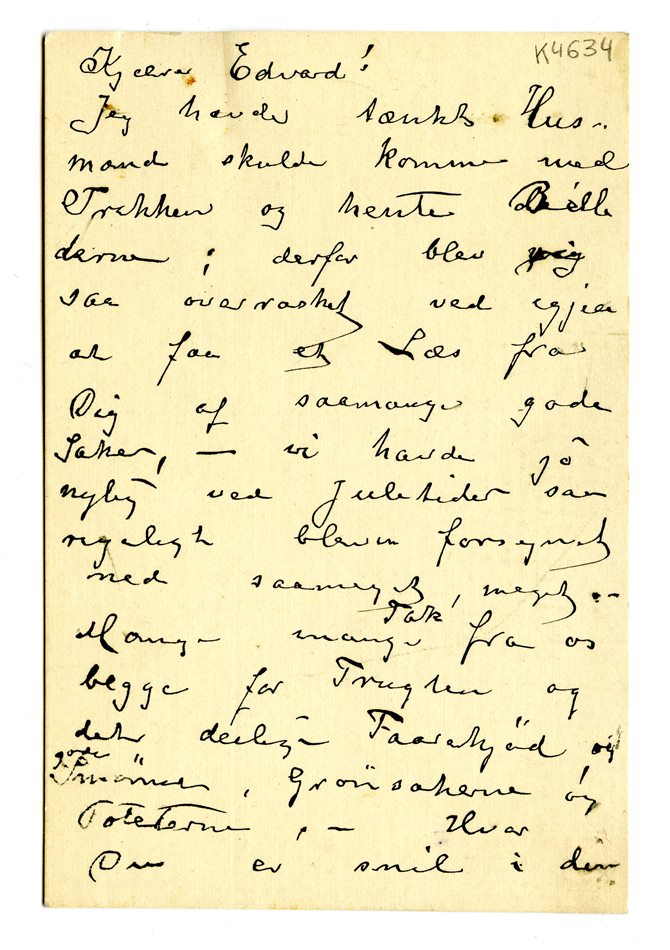 K4634
Kjære Edvard!
Jeg havde tænkt Hus-
mand skulde komme med
Trækken og hente Bille
derne; derfor blev jeg
saa overrasket ved igjen
at faa et Læs fra
Dig af saamange gode
Saker, — vi havde jo
nylig ved Juletider saa
rigeligt bleven forsynet
med saameget, meget. —
Mange mange Tak fra os
begge for Frugten og
det deilige Faarekjöd, og
gode Smörret, Grönsakerne og
Poteterne, — Hvor
Du er snil i din